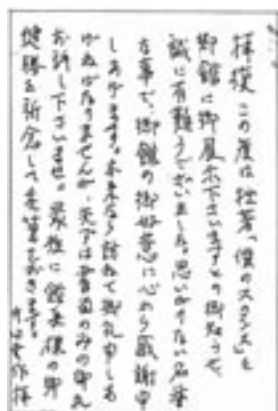 拝復 この度は拙著「僕のスタンス」を
御館に御展示下さいますとの御知らせ
誠に有難うございました。思いがけない名誉
な事で、御館の御好意に心から感謝申
しあげます。本来なら訪ねて御礼申しあ
げねばなりませんが、失礼は書面のみの御礼
お許し下さいませ。最後に館長様の御
健勝を祈念して筆をおきます。